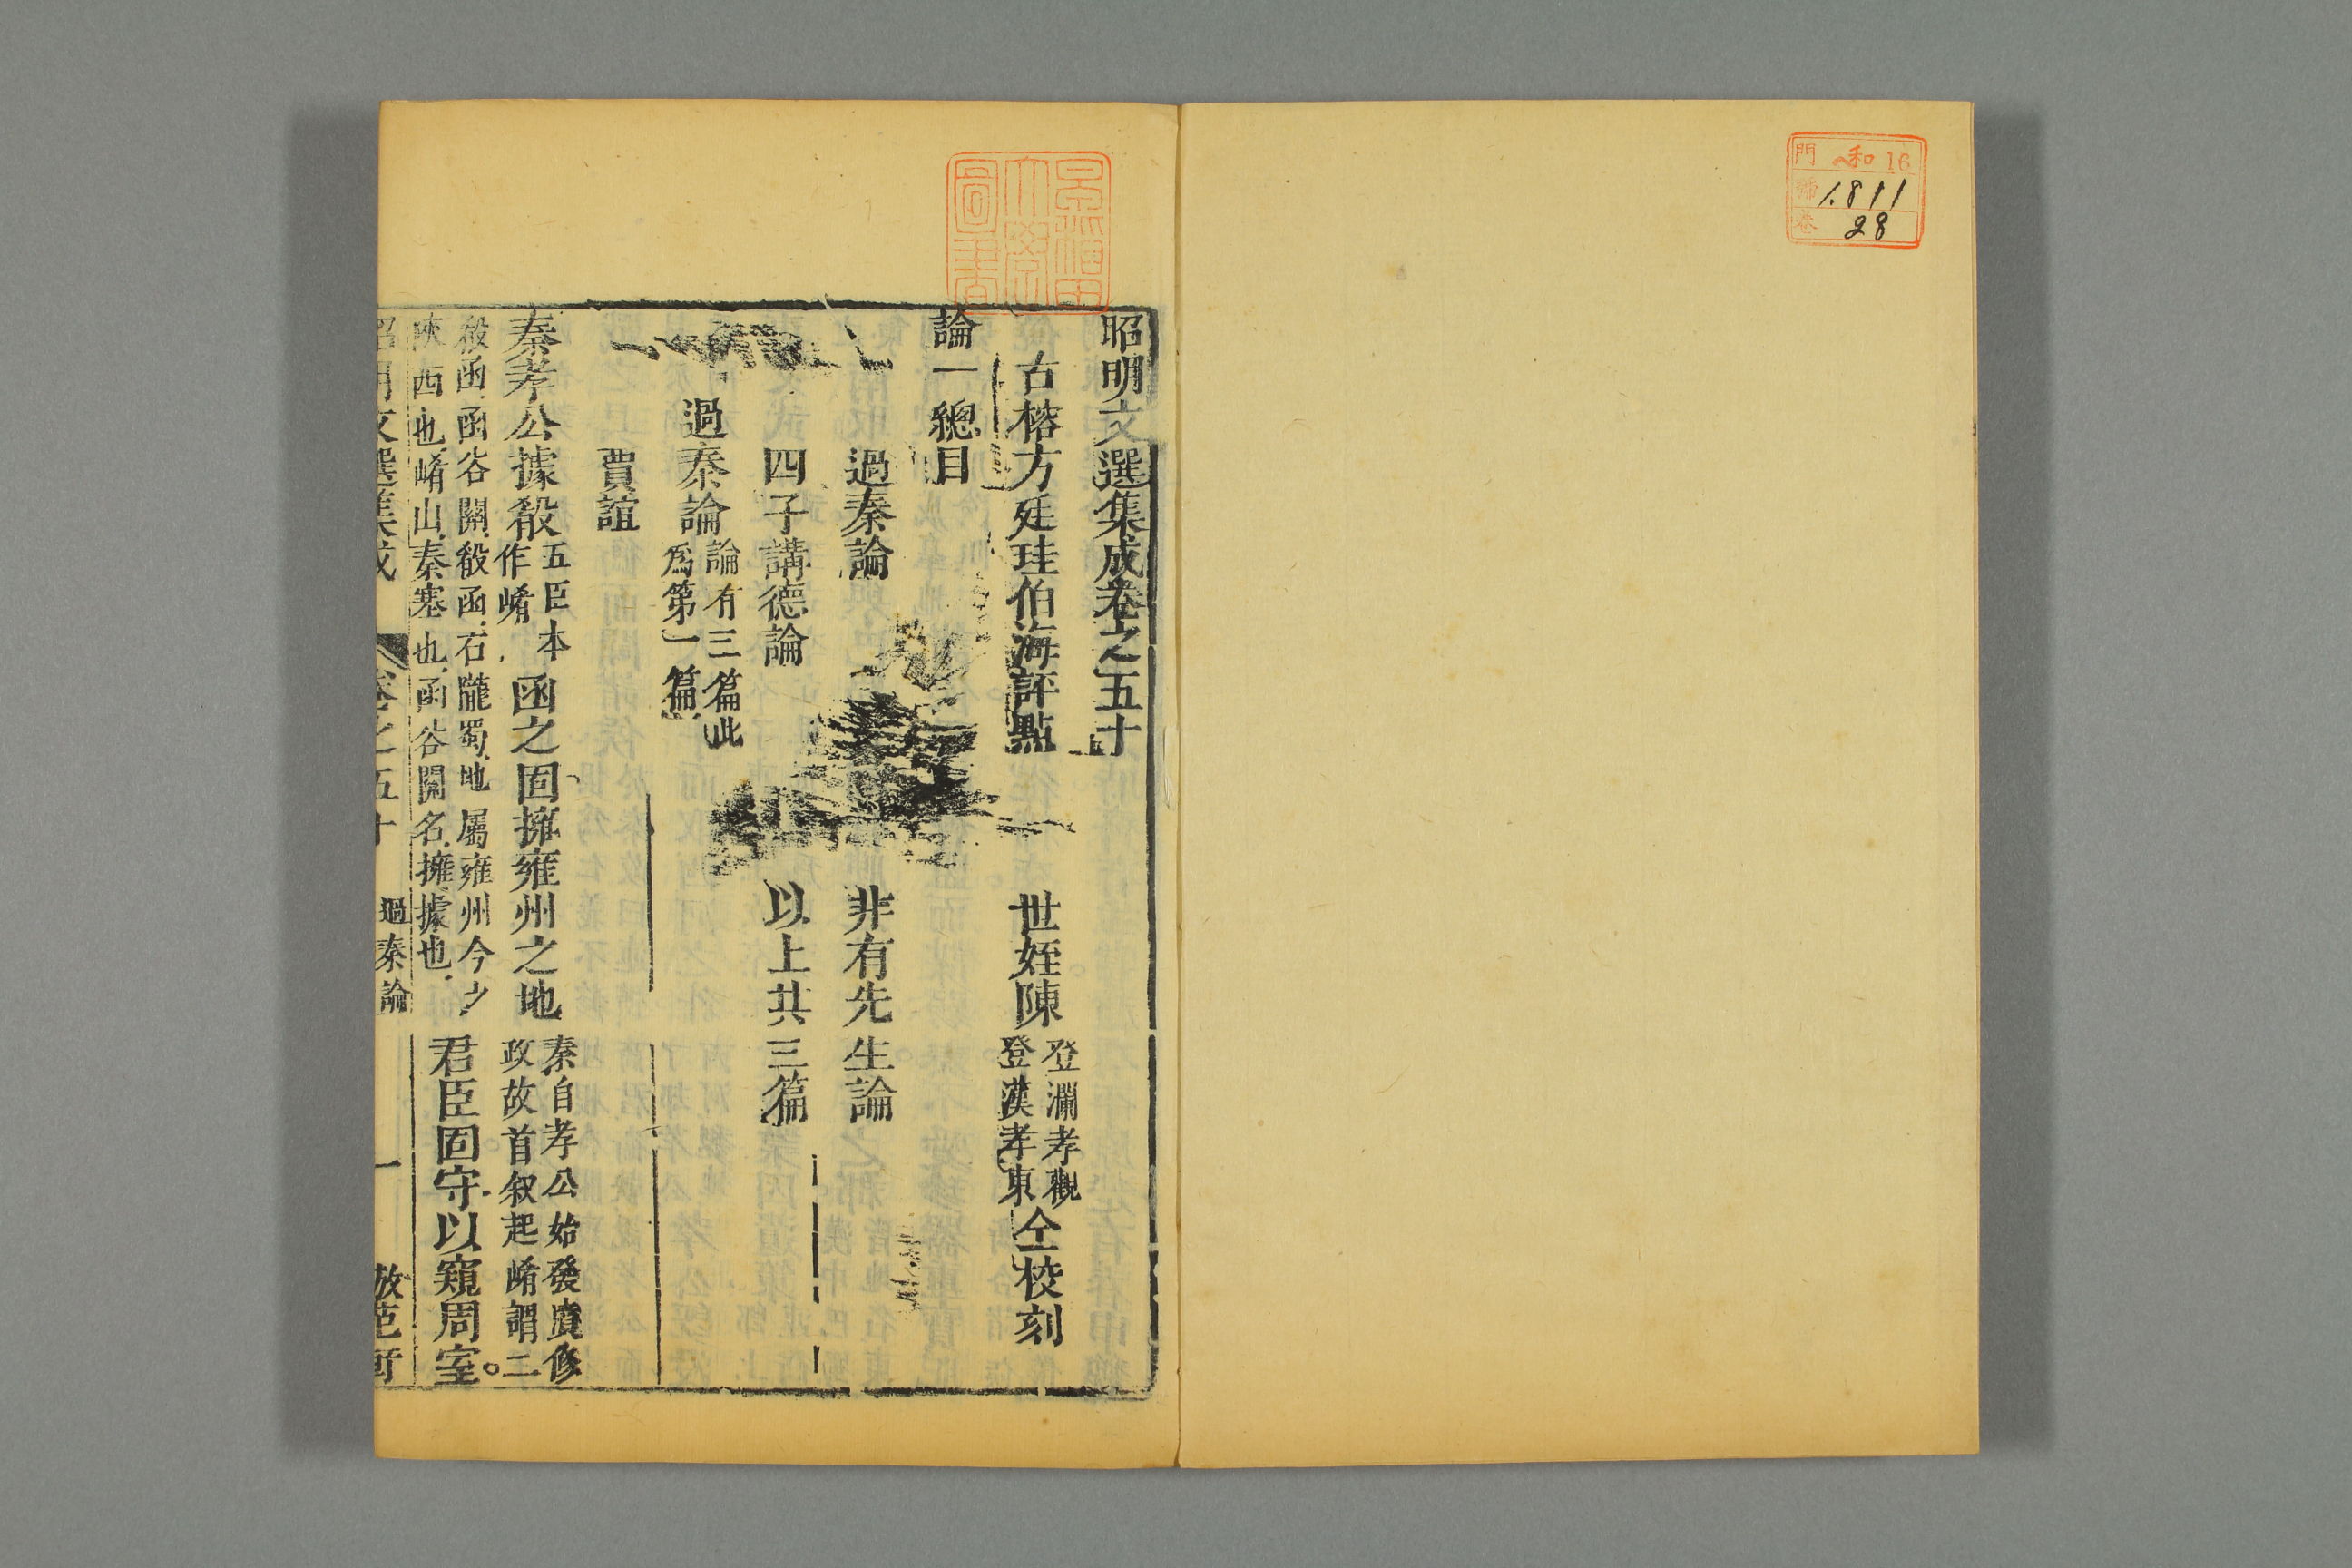 門 和16
號 1.811
卷 28
早稲田大學圖書
昭明文選集成卷之五十
古榕方廷珪伯海評點 世姪陳登瀾孝觀登漢孝東仝校刻
論一總目
過秦論 非有先生論
四子講德論 以上共三篇
過秦論論有三篇此爲第一篇
賈誼
秦孝公據殽五臣本作崤函之固擁雍州之地秦自孝公始發憤修政故首叙起崤謂二
殽函函谷關殽函右隴蜀地屬雍州今
陝西也崤山秦塞也函谷關名擁據也君臣固守以窺周室
昭明文選集成 卷之五十 過秦論 一